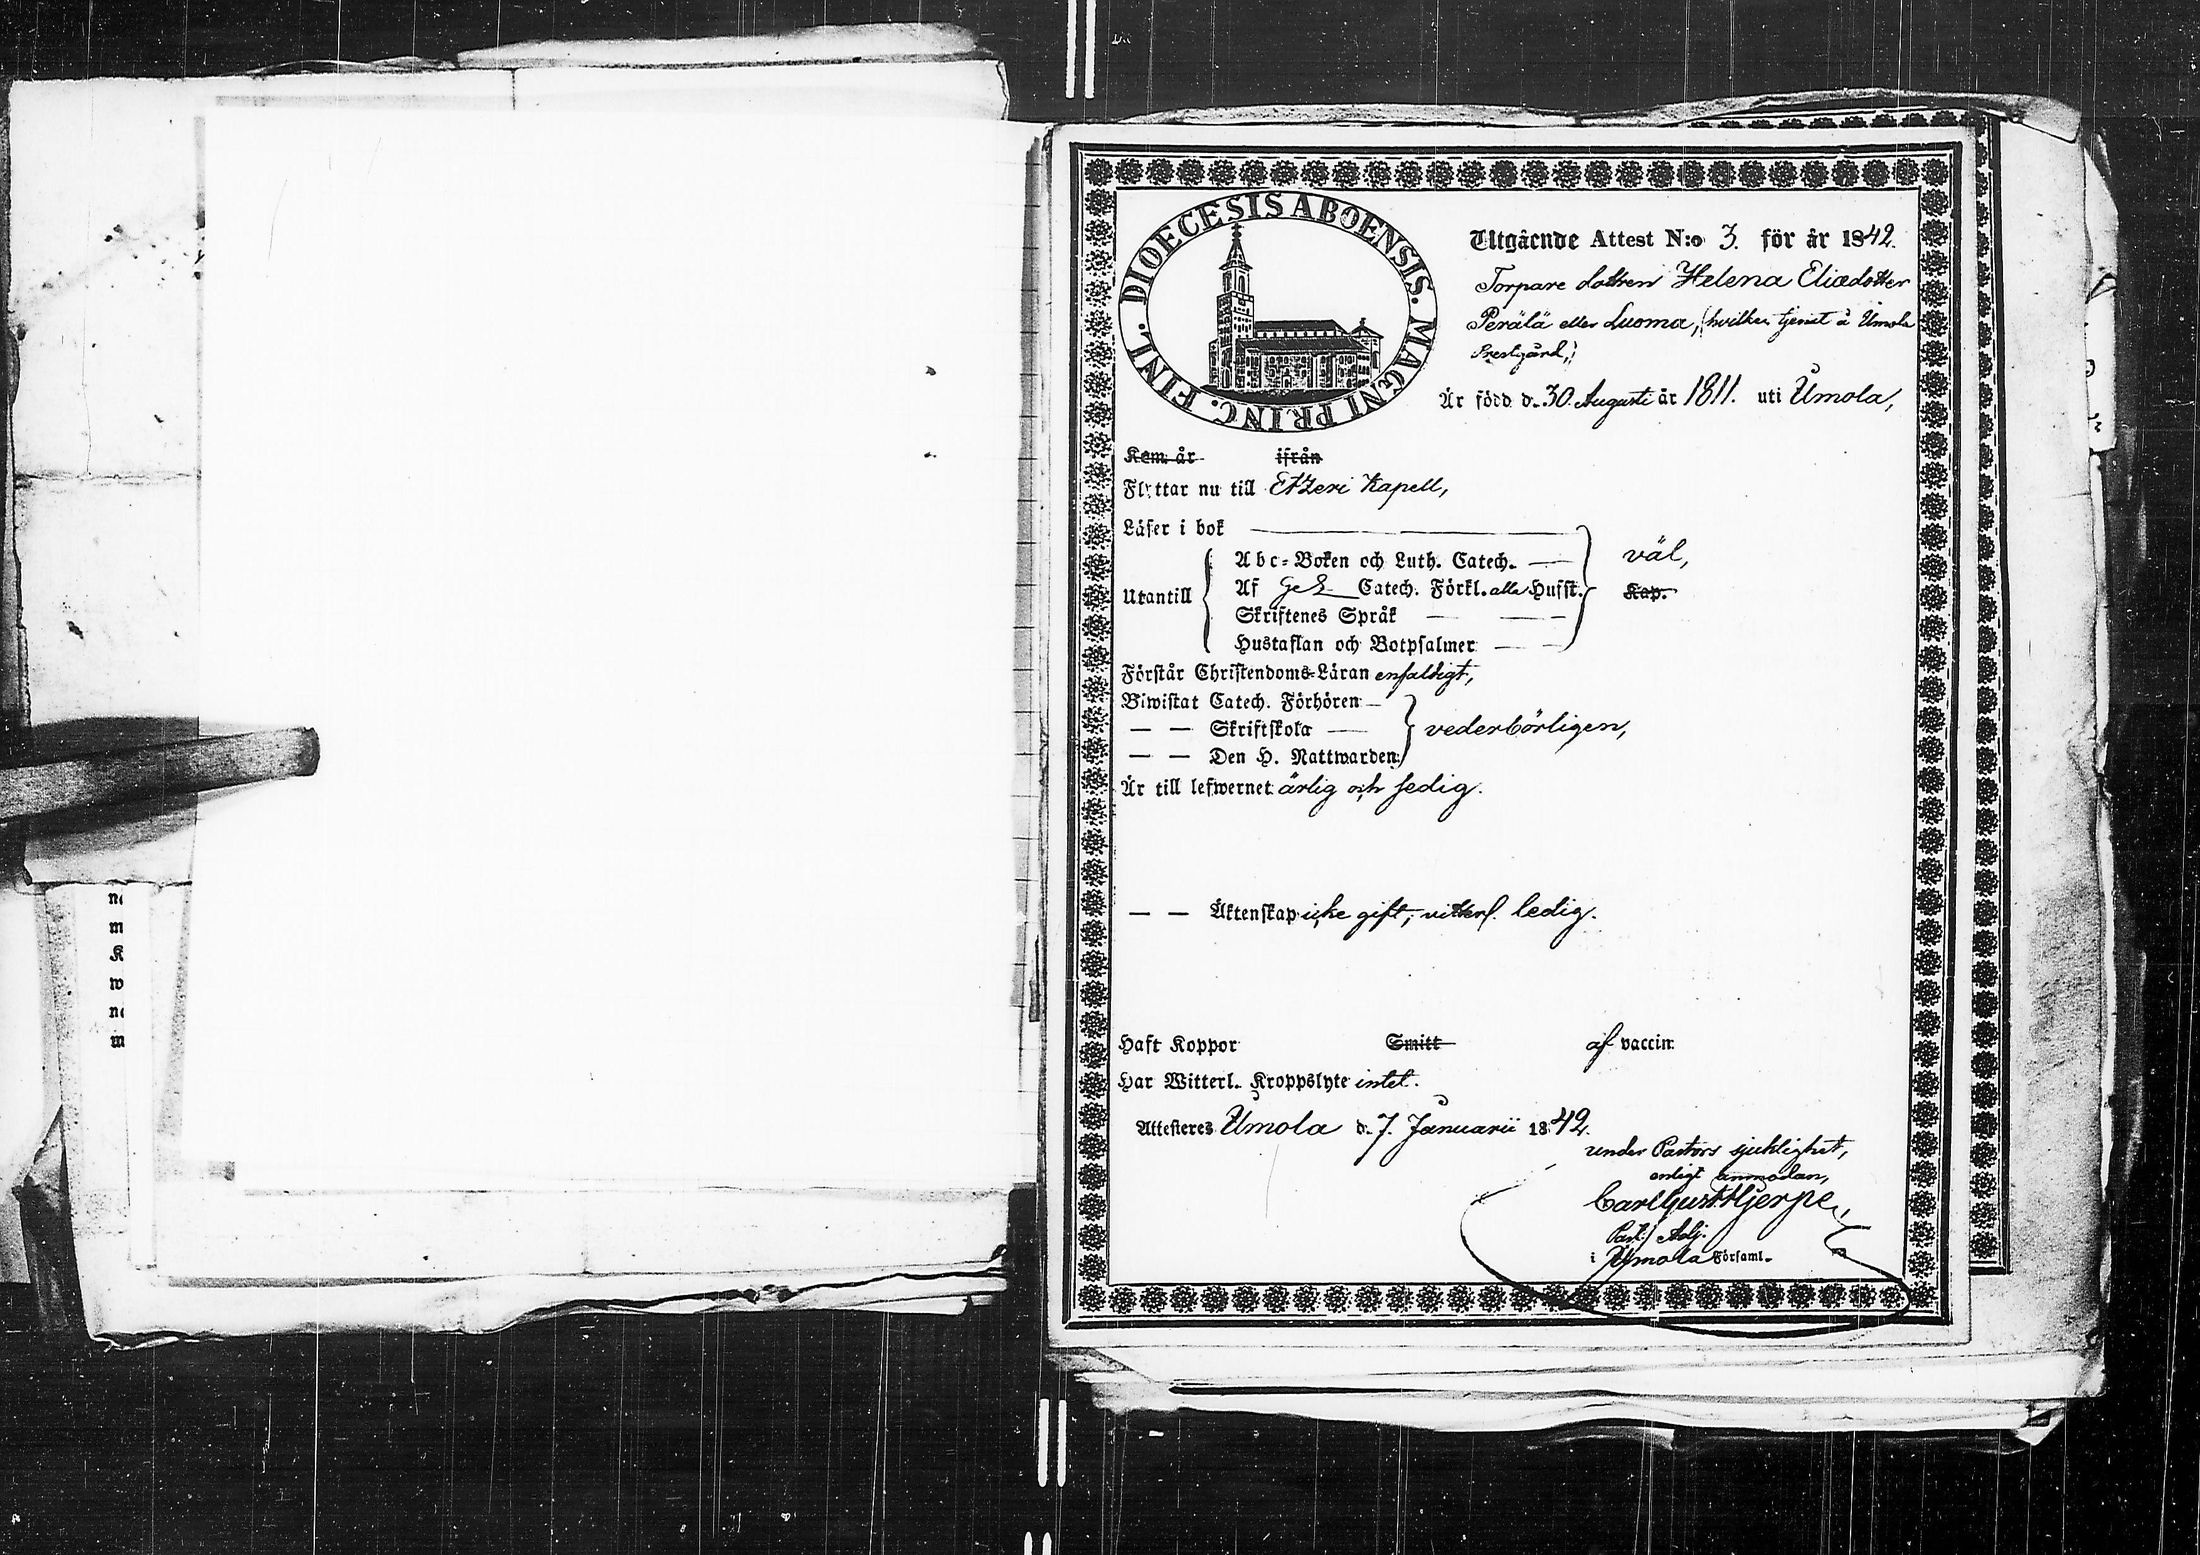 DIOECESIS ABOENSIS. MAGNI PRINC. FINL.
Utgående Attest N:o 3. för år 1842.
Torpare dottren Helena Eliædotter
Perälä eller Luoma, hvilken tjenst å Umola
Prestgård,
Är född d. 30. Augusti år 1811. uti Umola,
Kom. år ifrån
Flyttar nu till Etzeri Kapell,
Läser i bok
Abc-Boken och Luth. Catech. väl,
Utantill Af Catech. Förkl. alla Hufst. Kap.
Skriftenes Språk
Hustaflan och Botpsalmer
Förstår Christendoms-Läran enfaldigt,
Biwistat Catech. Förhören
— — Skriftskola — vederbörligen,
— — Den H. Nattwarden
Är till lefwernet ärlig och sedig.
— — Äktenskap icke gift, vitterl. ledig.
Haft Koppor Smitt af vaccin
Har Witterl. Kroppslyte intet.
Attesteres Umola d. 7. Januarii 1842.
under Pastors sjuklighet,
enligt anmodan,
Carl Gust. Hjerpe,
Past. Adj.
i Umola Församl.
n
m
K
w
n
m